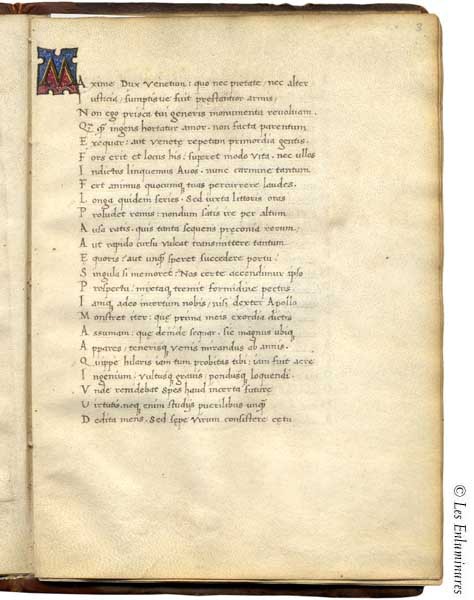 3
Maxime Dux Venetum: quo nec pietate, nec alter
Iusticia, sumptisve fuit prestantior armis,
Non ego prisca tui generis monumenta revolvam.
Q; ingens hortatur amor. non facta parentum
Exequar: aut venetę repetam primordia gentis.
Fors erit et locus his: superet modo vita. nec ullos
Indictos linquemus Avos. nunc carmine tantum
Fert animus quocunq; tuas percurrere laudes.
Longa quidem series. Sed iuxta littoris oras
Proludet remus: nondum satis ire per altum
Ausa ratis. quis tanta sequens pręconia rerum,
Aut rapido cursu valeat transmittere tantum
Equoris? aut unq; speret succedere portu?
Singula si memoret? Nos certe accendimur ipso
Prospectu: mixtaq; tremit formidine pectus
Iamq; adeo incertum nobis, nisi dexter Apollo
Monstret iter: que prima meis exordia dictis
Assumam: que deinde sequar. sic magnus ubiq;
Appares, tenerisq; venis mirandus ab annis.
Quippe hilaris iam tum probitas tibi: iam fuit acre
Ingenium, vultusq; gravis, pondusq; loquendi.
Unde renidebat spes haud incerta future
Virtutis. neq; enim studijs puerilibus unq;
Dedita mens. Sed sepe virum consistere cetu
© Les Enluminures